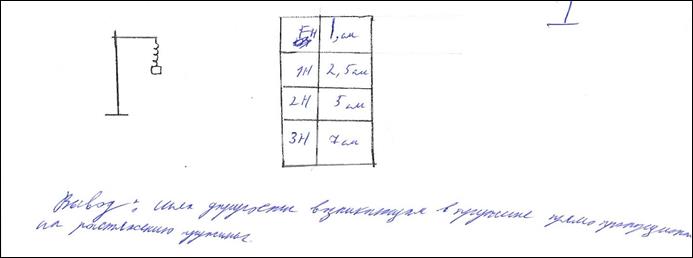 FН 1,см
1Н 2,5см
2Н 5см
3Н 7см
Вывод: сила упругости возникающая в пружине прямо пропорцион
на растяжению пружины.